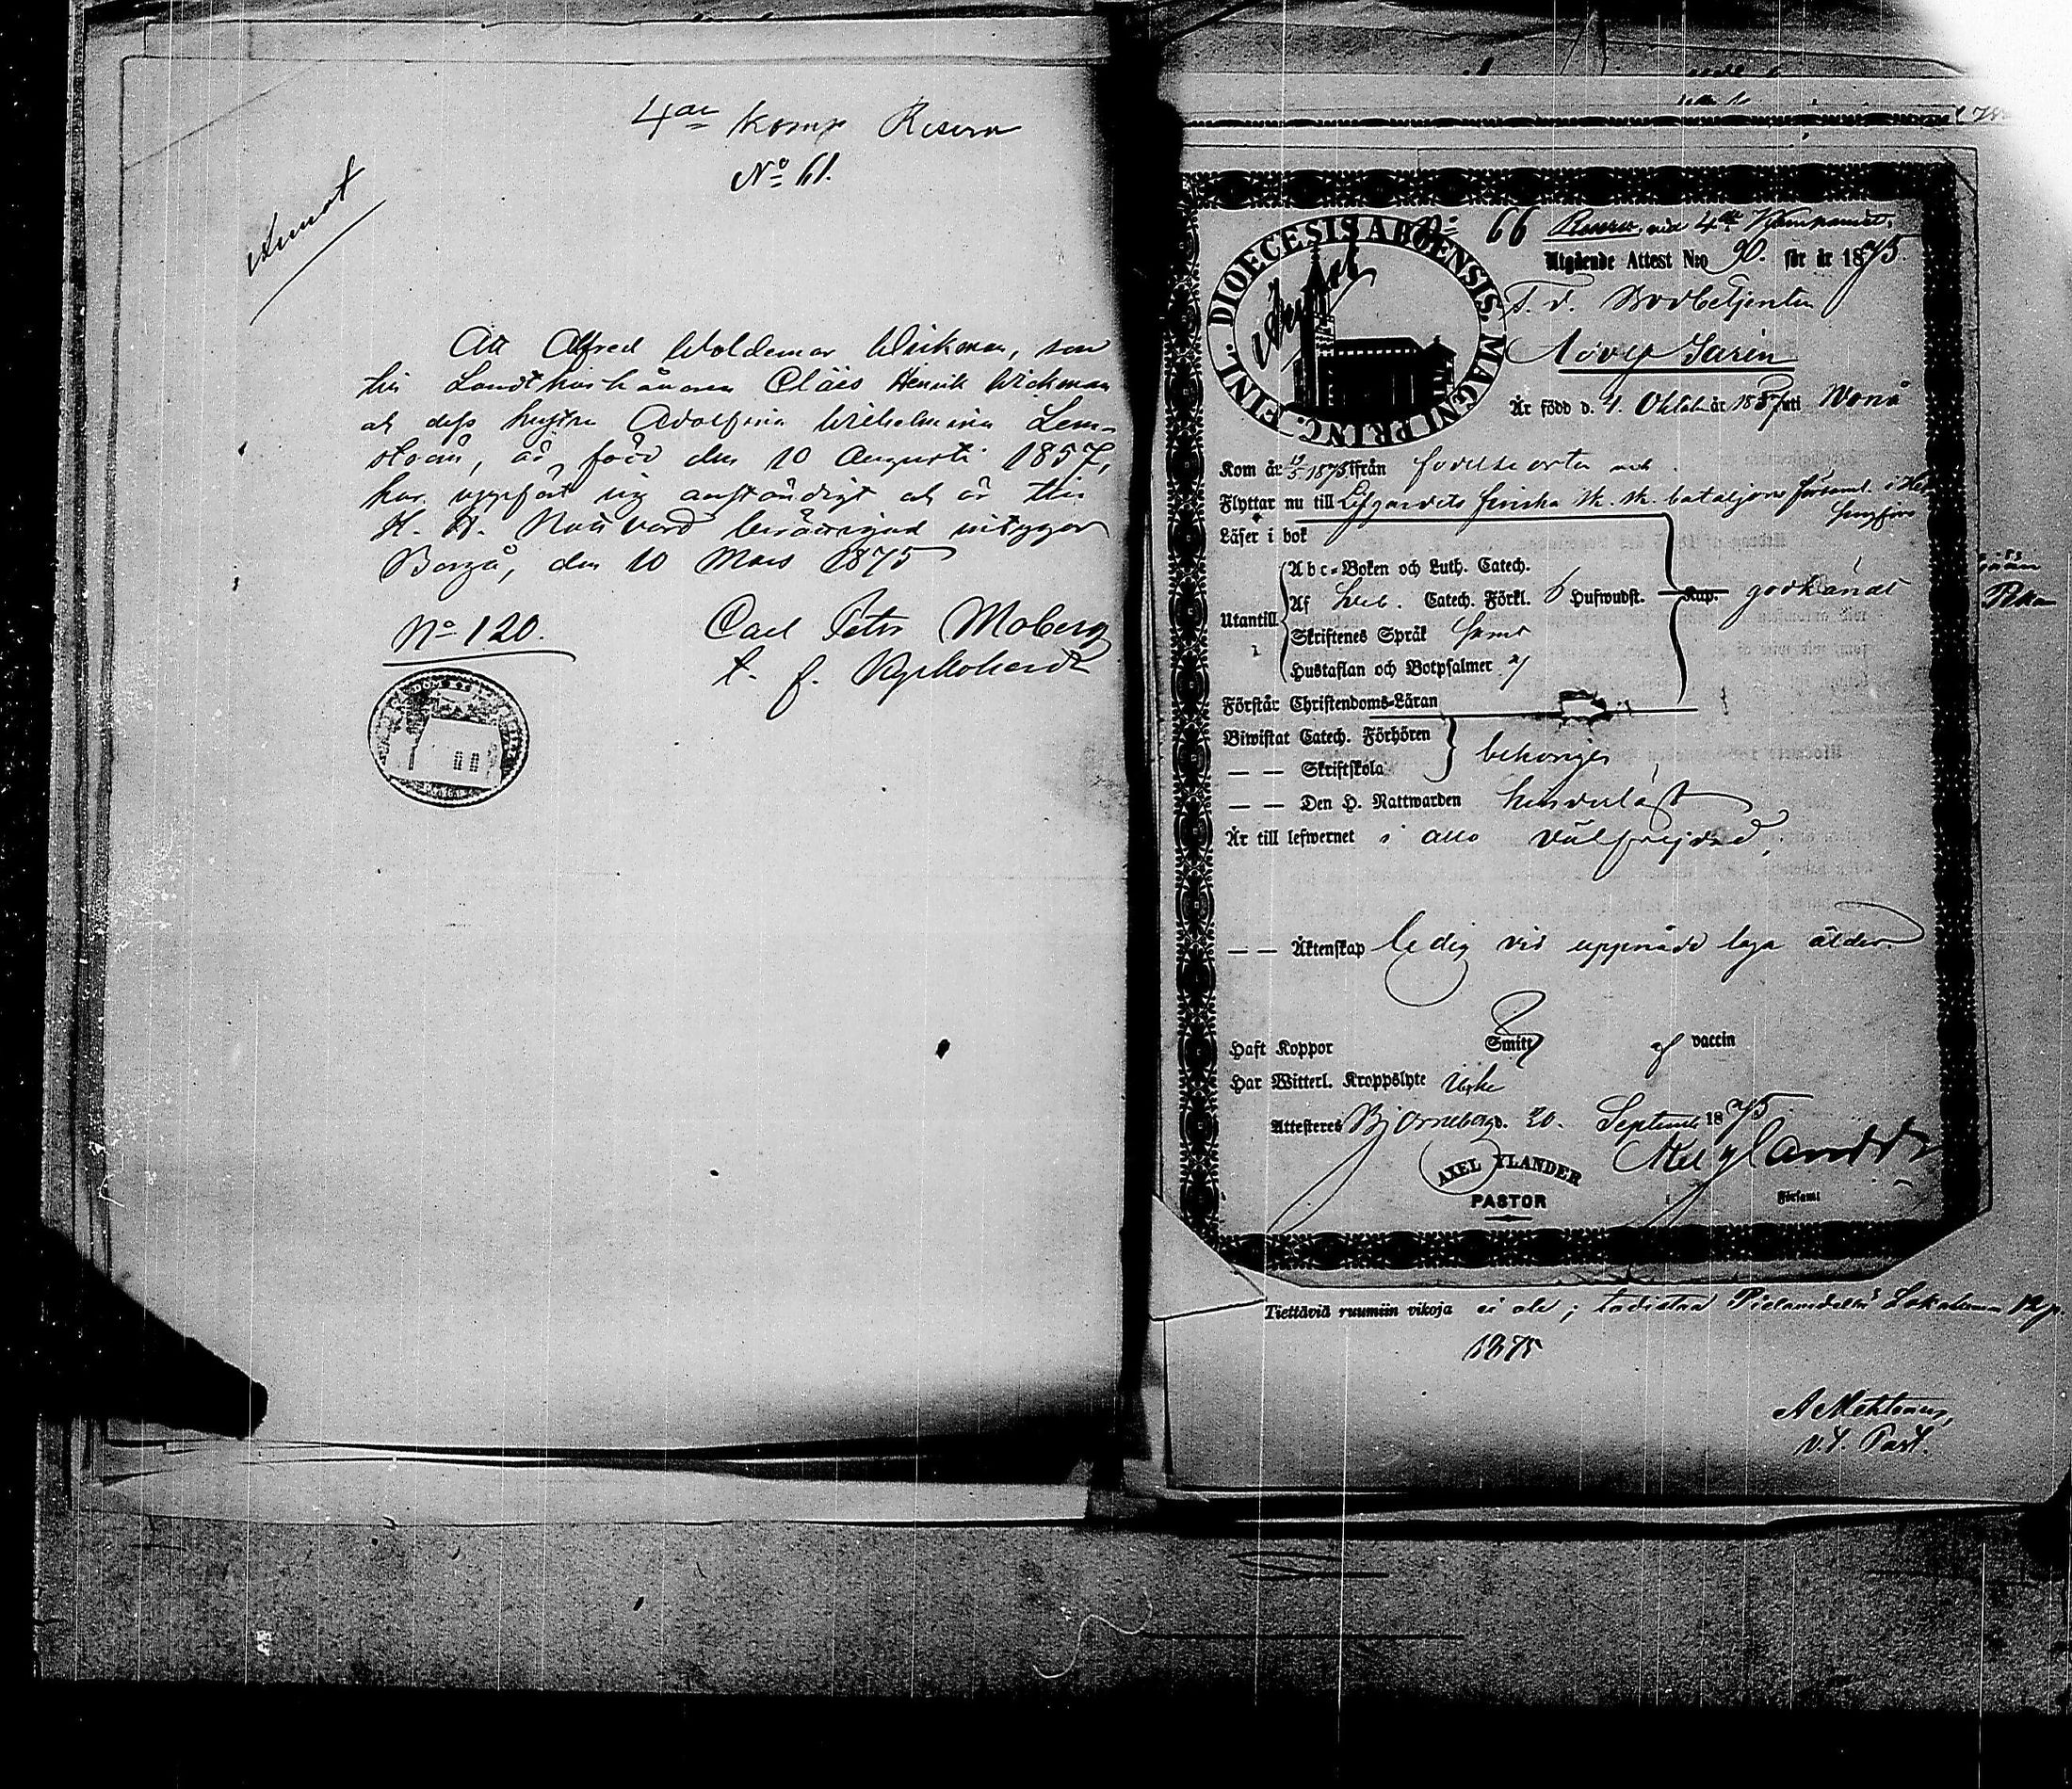 4de Komp Reserv
No 61.
Att Alfred Woldemar Wickman, son
till Landtkanhänaren Claës Henrik Wickman
och dess hustru Adolfina Wilhelmina Lem-
ström, är född den 10 Augusti 1857,
har uppfört sig anständigt och är till
H. H. Nattvard berättigad intygar
Borgå, den 10 Mars 1875
No 120.
Carl Peter Moberg
t. f. Kyrkoherde
No 66 Reserv vid 4de Kompaniet.
DIOECESIS ABOENSIS. MAGNI PRINC. FINL.
Utgående Attest N:o 90. för år 1875.
F. d. Bodbetjenten
Är född d. 4. Oktob. år 1857 uti
Kom år 1875 ifrån födelseorten och
Flyttar nu till Lifgardets finska sk. sk. bataljons församl. i Hel
singfors
Läser i bok
Abc-Boken och Luth. Catech.
Utantill Af Sveb. Catech. Förkl. 6 Hufwudst. Kap. godkändt
Skriftenes Språk samt
Hustaflan och Botpsalmer
Förstår Christendoms-Läran
Biwistat Catech. Förhören
— — Skriftskola behörigen
— — Den H. Nattwarden hinderlöst
Är till lefwernet i allo välfrejdad,
— — Äktenskap ledig vid uppnådd laga ålder
Haft Koppor Smitt af vaccin
Har Witterl. Kroppslyte Icke
Attesteres Björneborg d. 20. Septemb 1875.
AXEL YLANDER
PASTOR
Axel Ylander
Församl
Tiettäviä ruumiin vikoja ei ole; todistaa Pielavedellä Lokakuun
1875
v.t. Past.